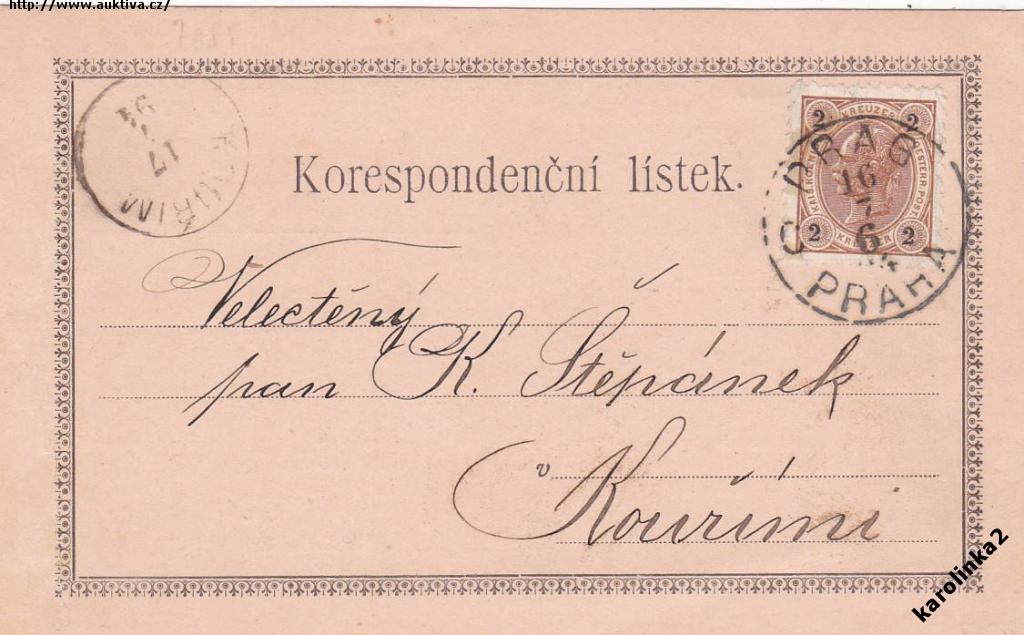 http://www.auktiva.cz/
KOUŘIM
17
91
Korespondenční lístek.
2 KREUZER 2
OESTERR. POST.
2 KREUZER 2
PRAG
16
7
6
PRAHA
Velectěný
pan K. Štěpánek
v Kouřimi
karolinka2